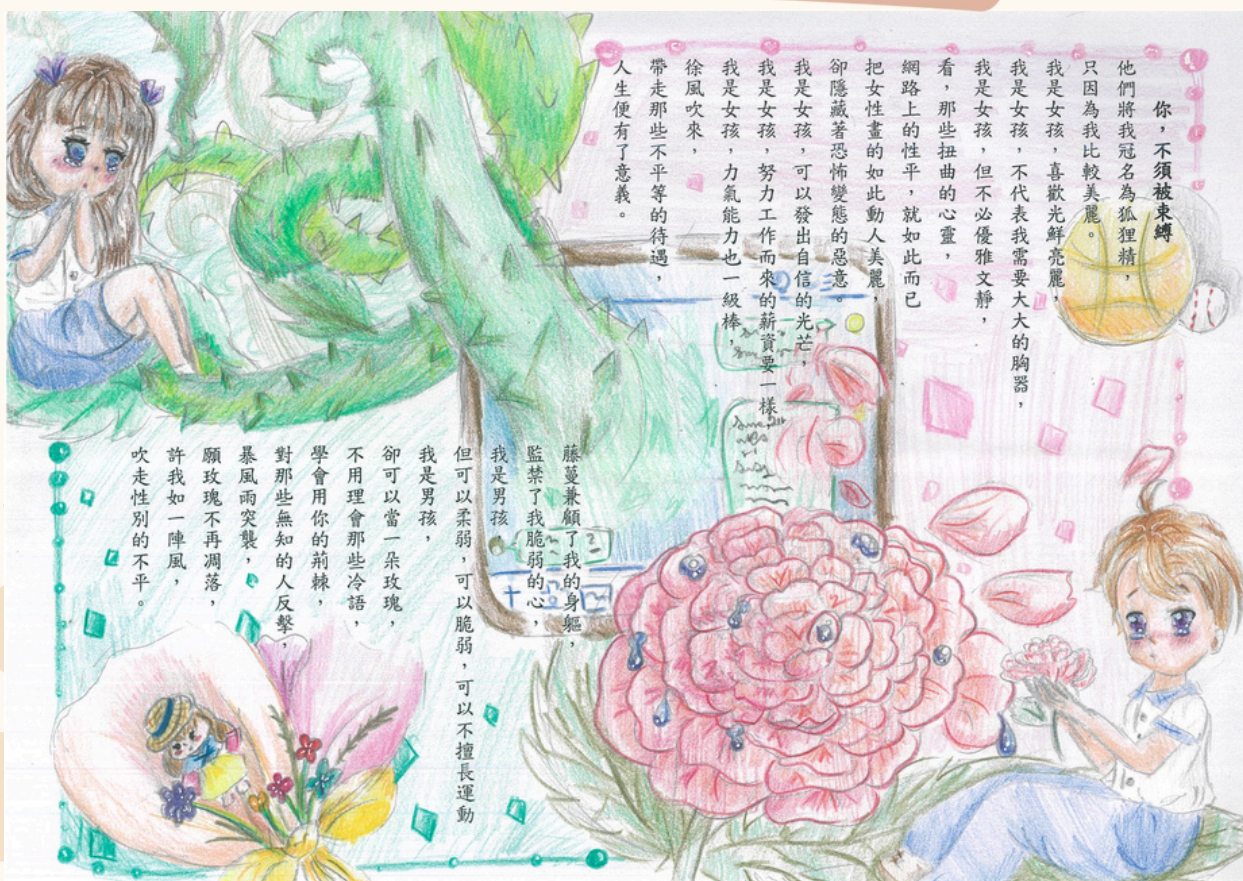 你，不須被束縛
他們將我冠名為狐狸精，
只因為我比較美麗。
我是女孩，喜歡光鮮亮麗，
我是女孩，不代表我需要大大的胸器，
我是女孩，但不必優雅文靜，
看，那些扭曲的心靈，
網路上的性平，就如此而已
把女性畫的如此動人美麗，
卻隱藏著恐怖變態的惡意。
我是女孩，可以發出自信的光芒，
我是女孩，努力工作而來的薪資要一樣
我是女孩，力氣能力也一級棒，
徐風吹來，
帶走那些不平等的待遇，
人生便有了意義。
藤蔓兼顧了我的身軀，
監禁了我脆弱的心，
我是男孩
但可以柔弱，可以脆弱，可以不擅長運動
我是男孩，
卻可以當一朵玫瑰，
不用理會那些冷語，
學會用你的荊棘，
對那些無知的人反擊，
暴風雨突襲，
願玫瑰不再凋落，
許我如一陣風，
吹走性別的不平。